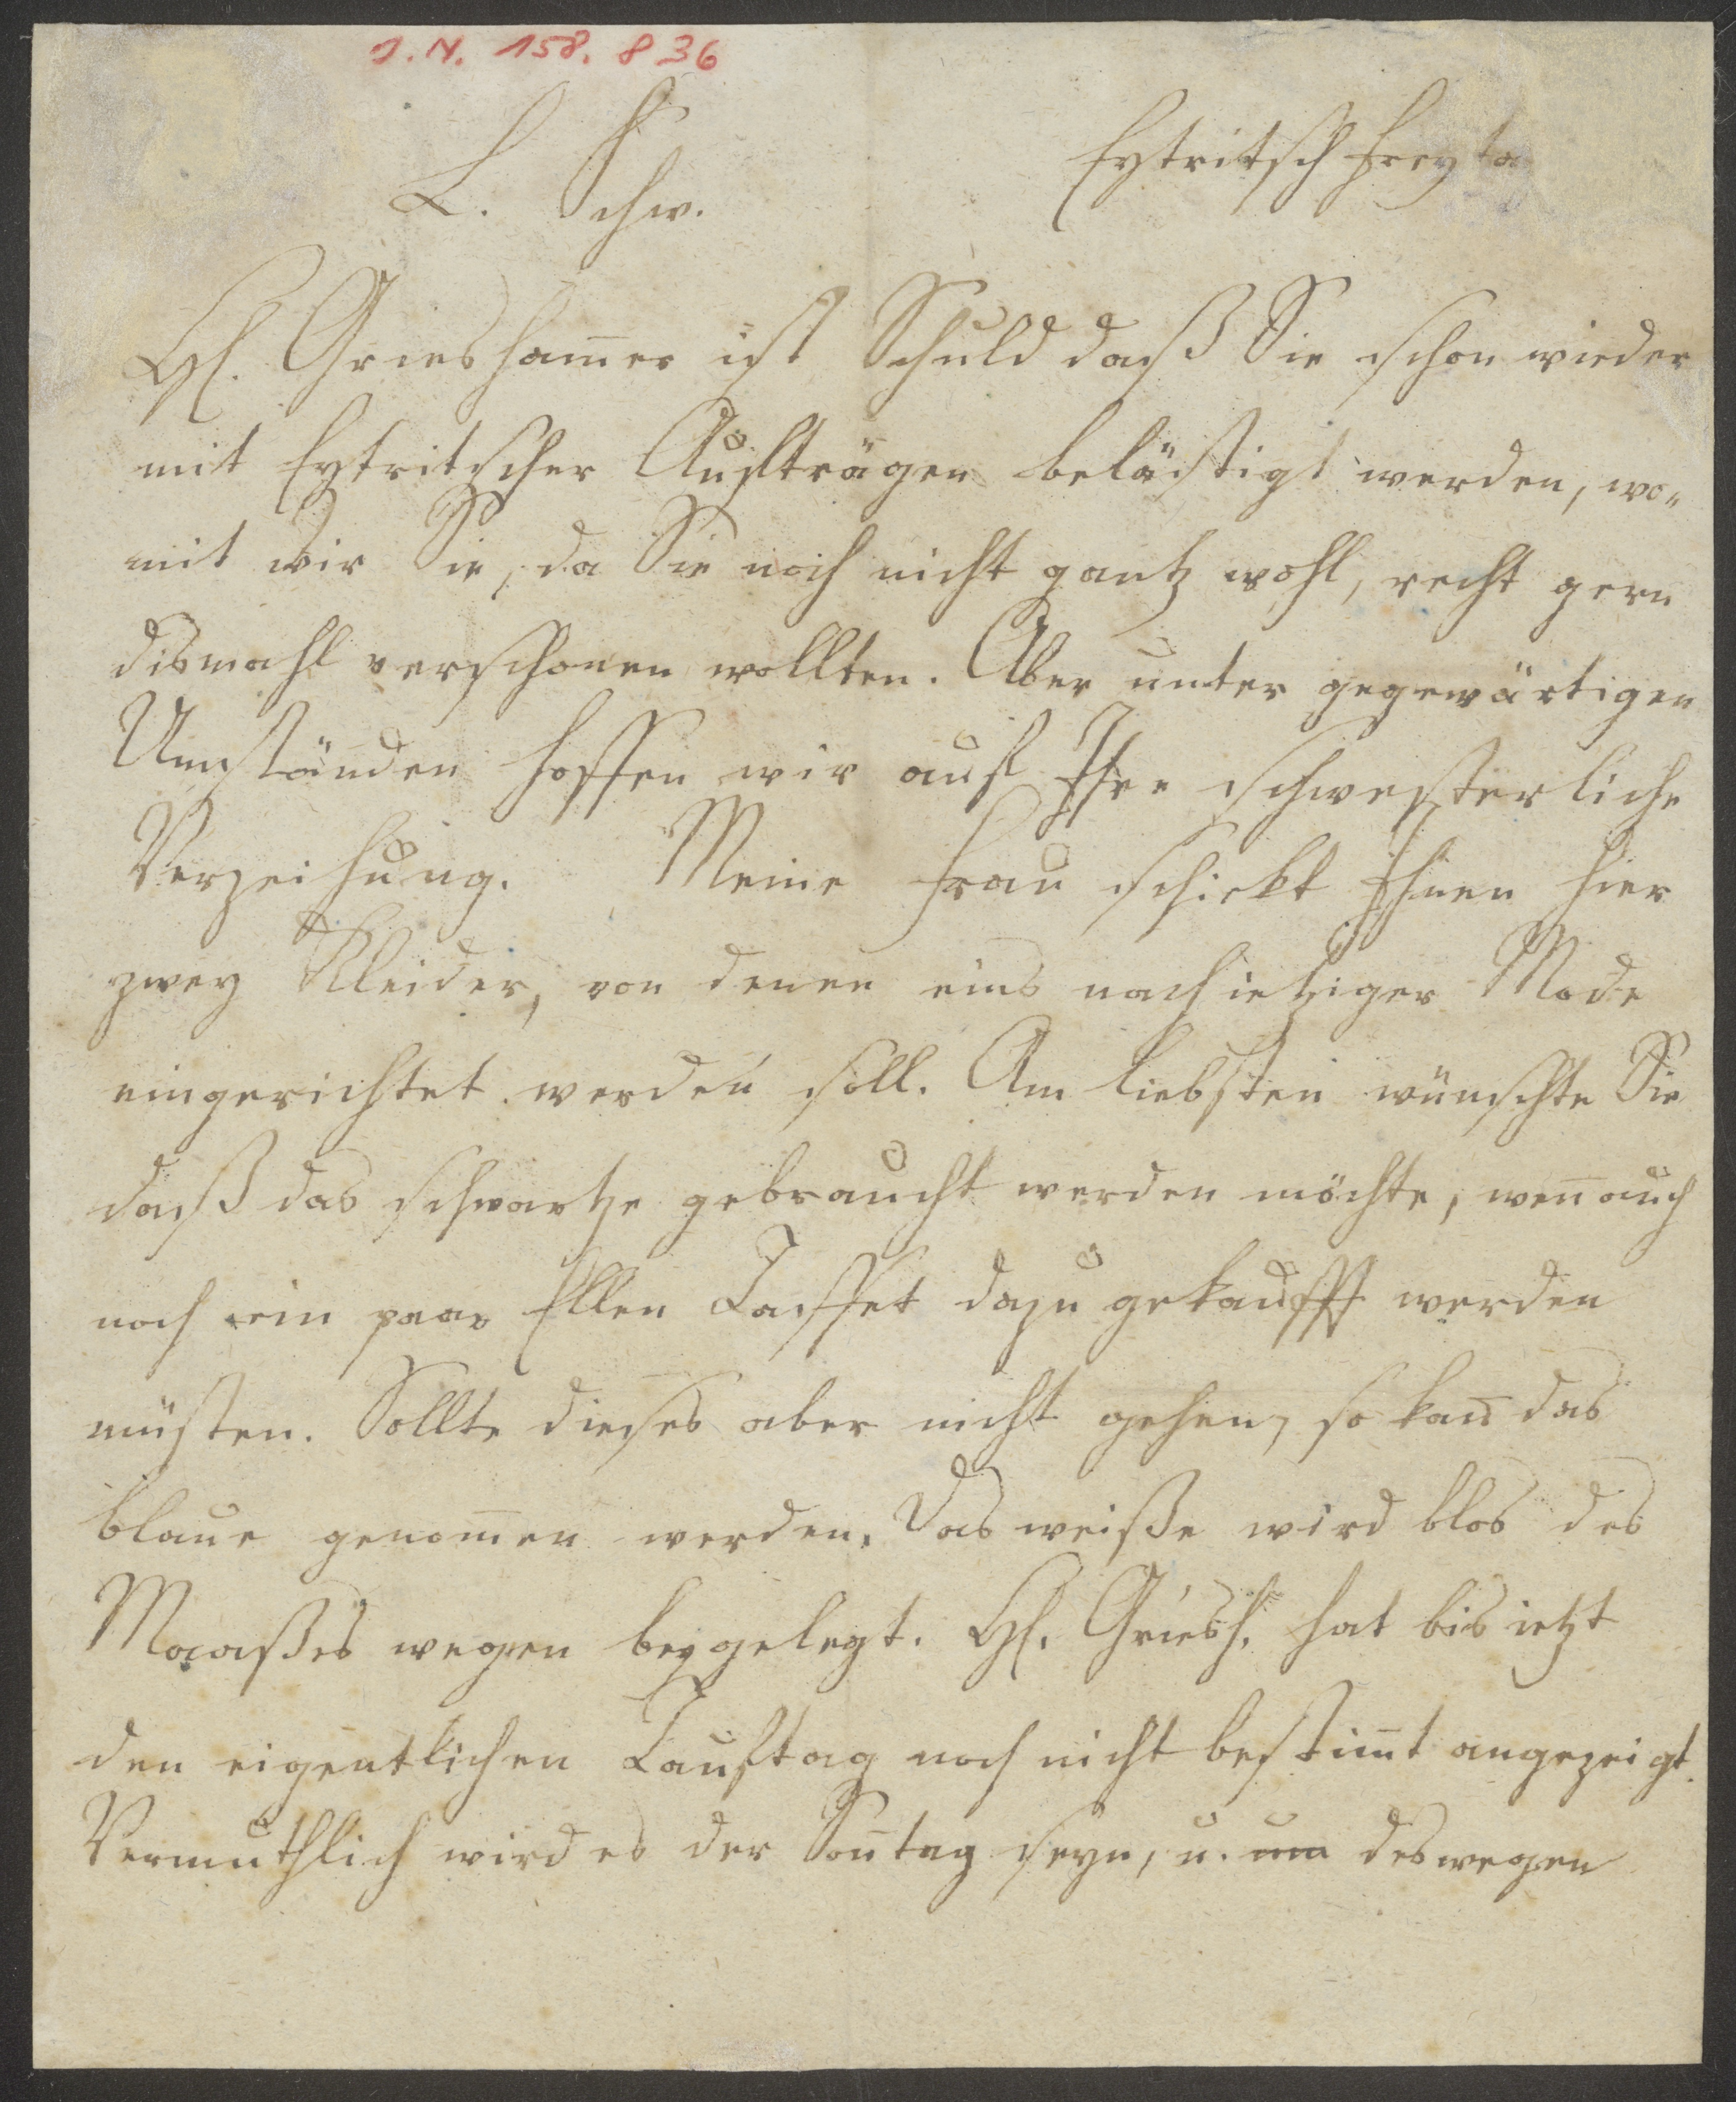 I.N. 158.836
Eytritsch Freyta
L. Schw.
H. Grieshamer ist Schuld daß Sie schon wieder
mit Eytritscher Aufträgen belästigt werden, wo-
mit wir Sie, da Sie noch nicht gantz wohl, recht gern
dismahl verschonen wollten. Aber unter gegewärtigen
Umständen hoffen wir auf Ihre schwesterliche
Verzeihung. Meine Frau schickt Ihnen hier
zwey Kleider, von denen eins nach ietziger Mode
eingerichtet werden soll. Am liebsten wünschte Sie
daß das schwartze gebraucht werden möchte, wen̄ auch
noch ein paar Ellen Taffet dazu gekaufft werden
müsten. Sollte dieses aber nicht gehen, so kan̄ das
blaue genom̄en werden. Das weiße wird blos des
Maaßes wegen beygelegt. H. Griesh. hat bis ietzt
den eigentlichen Tauftag noch nicht bestim̄t angezeigt.
Vermuthlich wird es der Son̄tag seyn, u. um deswegen